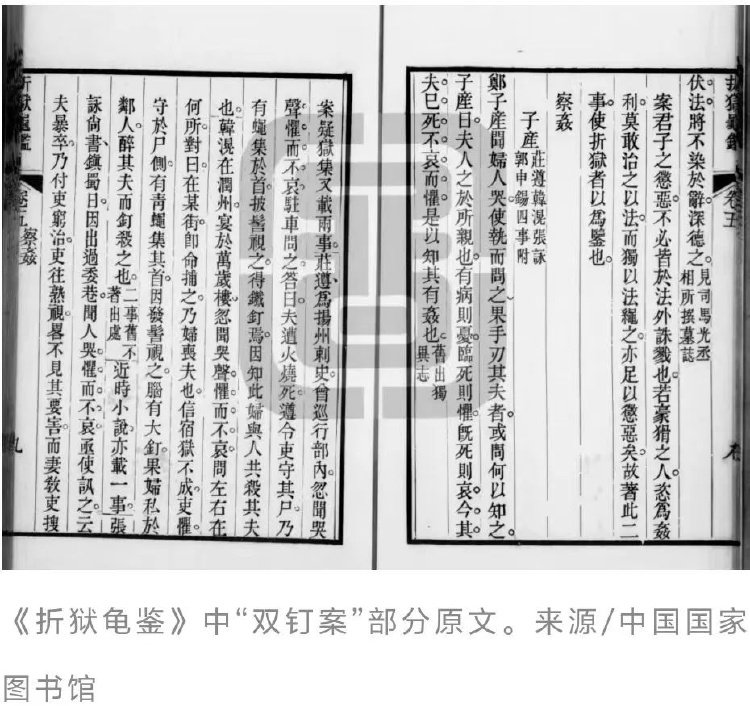 折獄龜鑑 卷五
伏法將不染於辭深德之見司馬光丞
相所撰墓誌
案君子之懲惡不必皆於法外誅戮也若豪猾之人恣為姦
利莫敢治之以法而獨以法繩之亦足以懲惡矣故著此二
事使折獄者以為鑒也
察姦
子產莊遵韓滉張詠
郭申錫四事附
鄭子產聞婦人哭使執而問之果手刃其夫者或問何以知之
子產曰夫人之於所親也有病則憂臨死則懼既死則哀今其
夫已死不哀而懼是以知其有姦也舊出獨
異志
案疑獄集又載兩事莊遵為揚州刺史曾巡行部內忽聞哭
聲懼而不哀駐車問之答曰夫遭火燒死遵令吏守其尸乃
有蠅集於首披髻視之得鐵釘焉因知此婦與人共殺其夫
也韓滉在潤州宴於萬歲樓忽聞哭聲懼而不哀問左右在
何所對曰在某街即命捕之乃婦喪夫也信宿獄不成吏懼
守於尸側有青蠅集其首因發髻視之腦有大釘果婦私於
鄰人醉其夫而釘殺之也二事舊不
著出處近時小說亦載一事張
詠尚書鎮蜀日因出過委巷聞人哭懼而不哀亟使訊之云
夫暴卒乃付吏窮治吏往熟視畧不見其要害而妻教吏搜
折獄龜鑑 卷五 察姦 九
《折狱龟鉴》中“双钉案”部分原文。来源/中国国家
图书馆